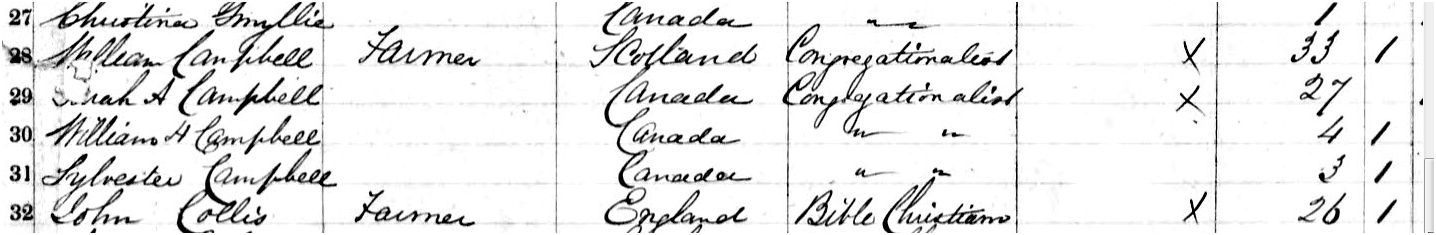 27 Christina Smyllie Canada " 1
28 William Campbell Farmer Scotland Congregationalist X 33 1
29 Campbell Canada Congregationalist X 27
30 William H Campbell Canada " " 4 1
31 Sylvester Campbell Canada " " 3 1
32 John Collis Farmer England Bible Christian X 26 1